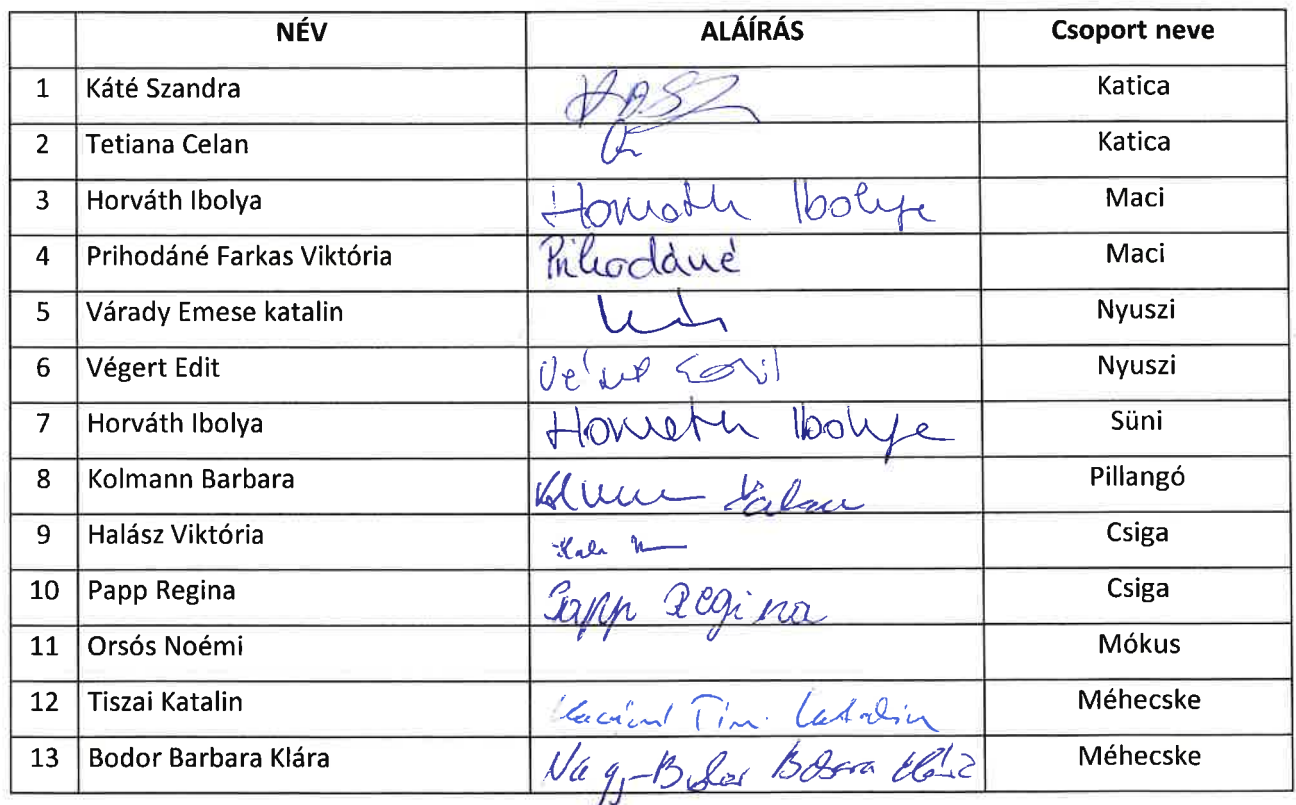 NÉV ALÁÍRÁS Csoport neve
1 Káté Szandra Katica
2 Tetiana Celan Katica
3 Horváth Ibolya Horváth Ibolya Maci
4 Prihodáné Farkas Viktória Prihodáné Maci
5 Várady Emese katalin Nyuszi
6 Végert Edit Nyuszi
7 Horváth Ibolya Horváth Ibolya Süni
8 Kolmann Barbara Pillangó
9 Halász Viktória Csiga
10 Papp Regina Papp Regina Csiga
11 Orsós Noémi Mókus
12 Tiszai Katalin Katalin Méhecske
13 Bodor Barbara Klára Méhecske